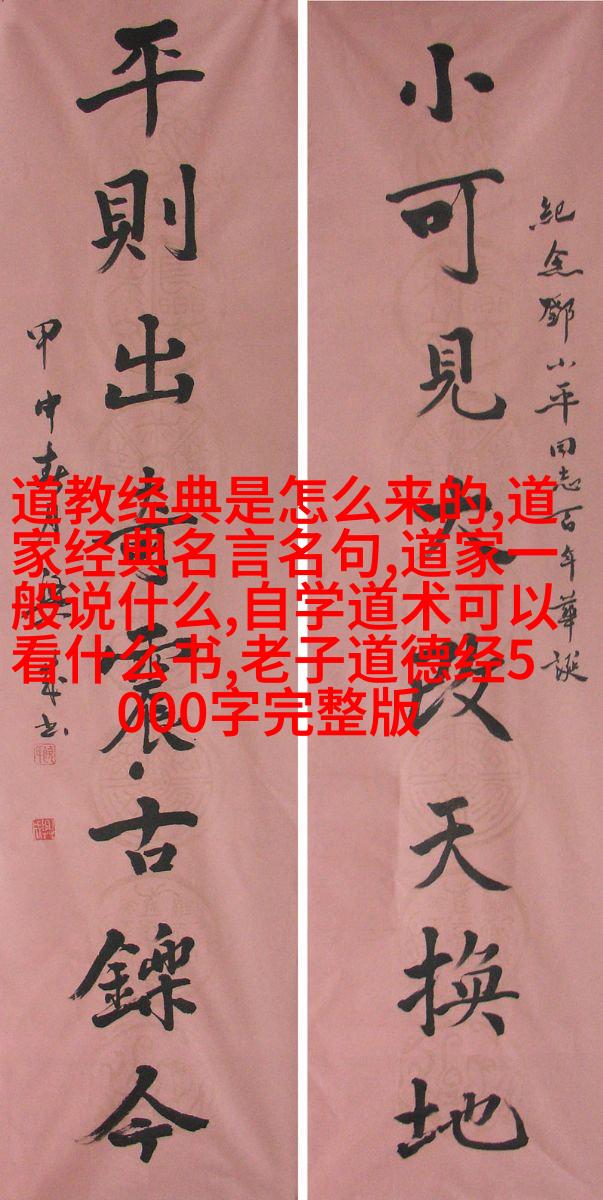 紀念鄧小平同志百年華誕
小可見大改天換地
平則出奇震古鑠今
甲申春月
道教经典是怎么来的,道
家经典名言名句,道家一
般说什么,自学道术可以
看什么书,老子道德经5
000字完整版